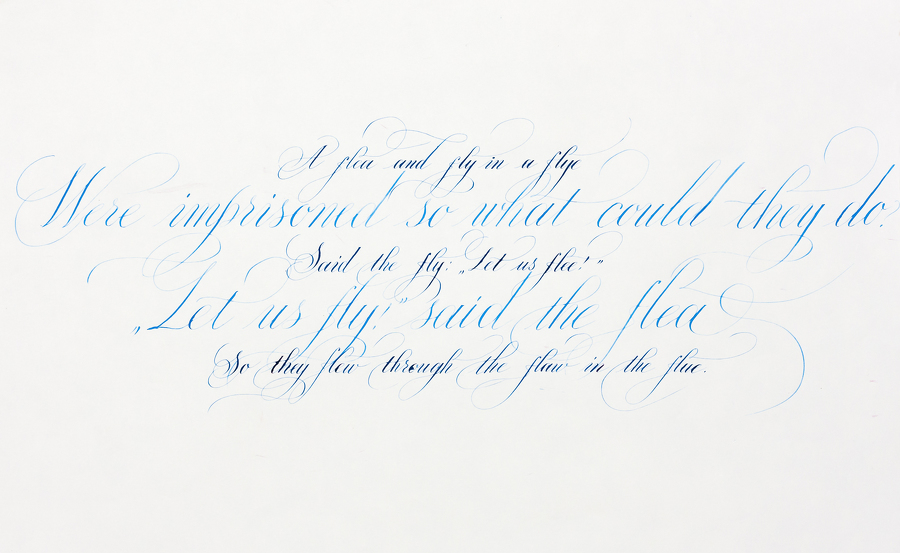 A flea and fly in a flye
Were imprisoned so what could they do?
Said the fly: „Let us flee!"
„Let us fly!" said the flea
So they flew through the flaw in the flue.